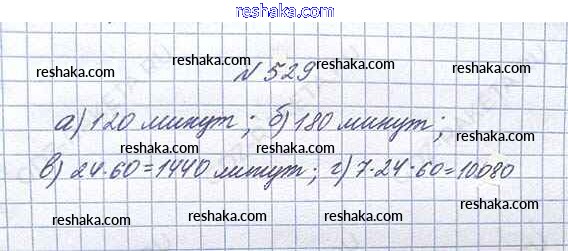 reshaka.com
№ 529
reshaka.com reshaka.com reshaka.com reshaka.com
а) 120 минут; б) 180 минут;
reshaka.com reshaka.com reshaka.com reshaka.com
в) 24·60=1440 минут; г) 7·24·60=10080
reshaka.com reshaka.com reshaka.com reshaka.com
reshaka.com